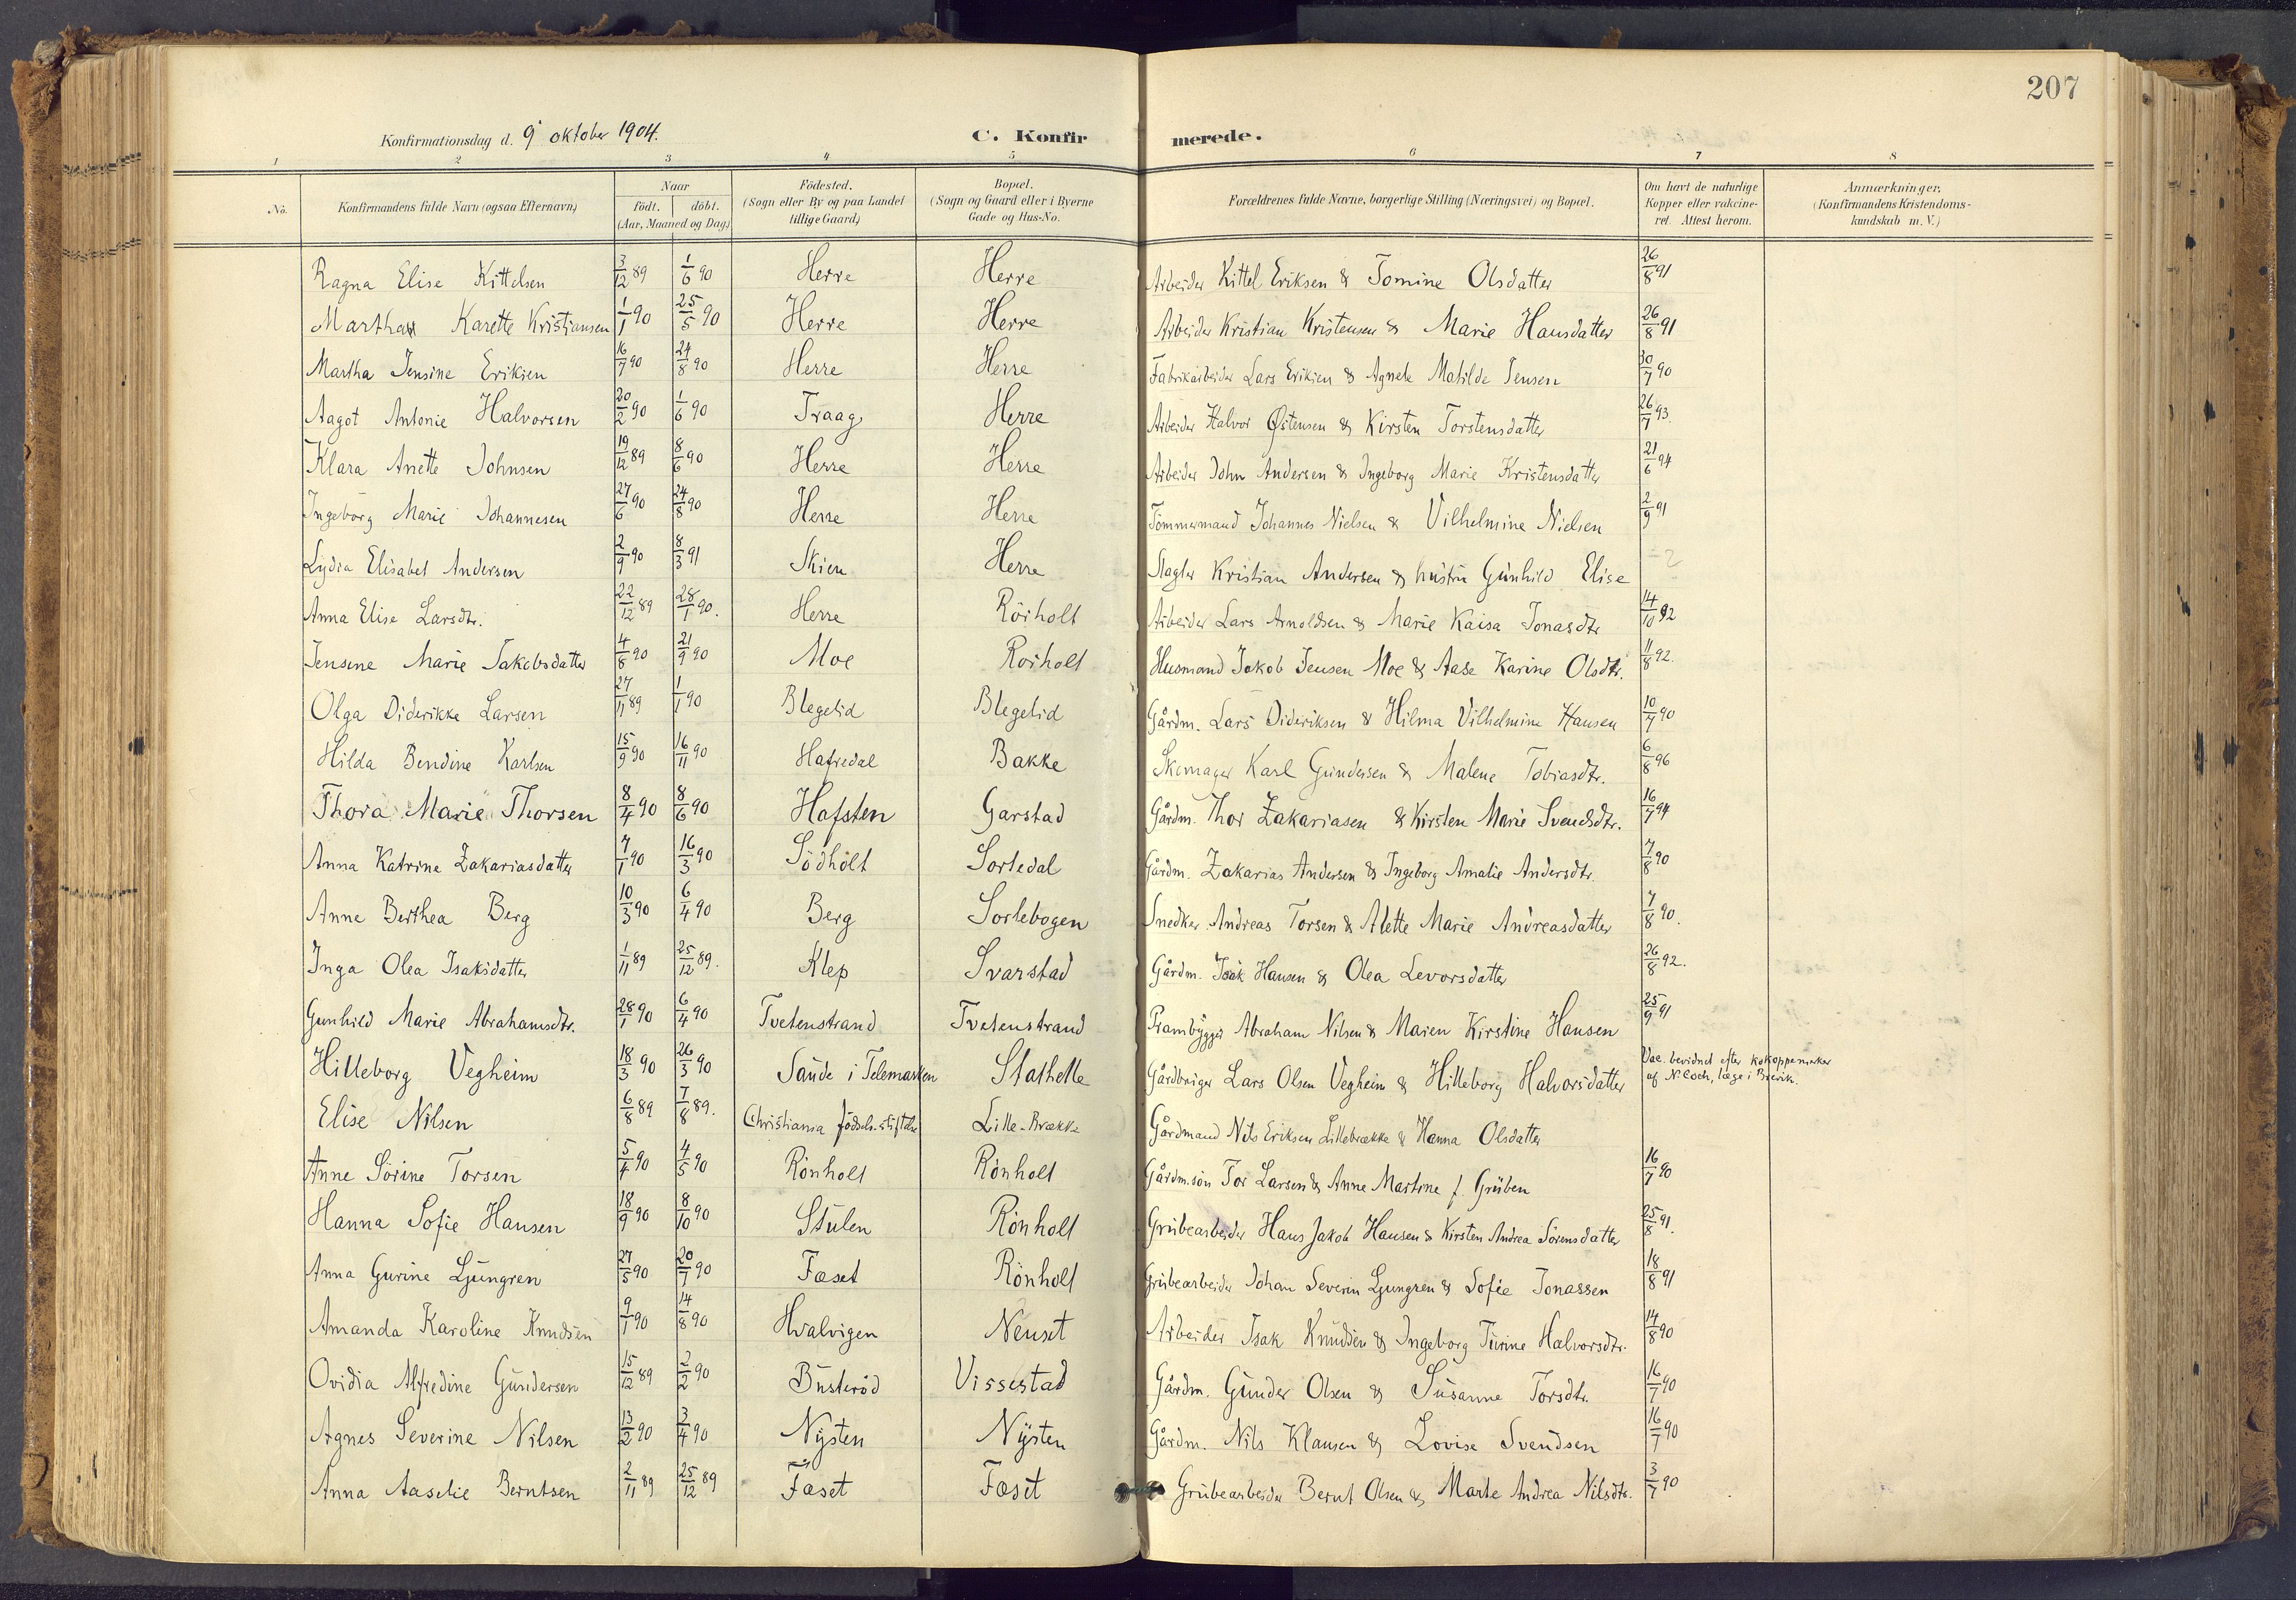 207
Konfirmationsdag d. 9' oktober 1904. C. Konfirmerede.
1 2 3 4 5 6 7 8
No. Konfirmandens fulde Navn (ogsaa Efternavn) Naar födt. döbt. (Aar, Maaned og Dag.) Födested. (Sogn eller By og paa Landet tillige Gaard) Bopæl. (Sogn og Gaard eller i Byerne Gade og Hus-No. Forældrenes fulde Navne, borgerlige Stilling (Næringsvei) og Bopæl. Om havt de naturlige Kopper eller vakcineret. Attest herom. Anmærkninger. (Konfirmandens Kristendomskundskab m. V.)
Ragna Elise Kittelsen 3/12 89 1/6 90 Herre Herre Arbeider Kittel Eriksen & Tomine Olsdatter 26/8 91
Martha Karette Kristiansen 1/1 90 25/5 90 Herre Herre Arbeider Kristian Kristensen & Marie Hansdatter 26/8 91
Martha Jensine Eriksen 16/7 90 24/8 90 Herre Herre Fabrikarbeider Lars Eriksen & Agnete Matilde Jensen 30/7 90
Aagot Antonie Halvorsen 20/2 90 1/6 90 Traag Herre Arbeider Halvor Østensen & Kirsten Torstensdatter 26/7 93.
Klara Anette Johnsen 19/12 89 8/6 90 Herre Herre Arbeider John Andersen & Ingeborg Marie Kristensdatter 21/6 94
Ingeborg Marie Johannesen 27/6 90 24/8 90 Herre Herre Tömmermand Johannes Nielsen & Vilhelmine Nielsen 2/9 91
Lydia Elisabet Andersen 2/9 90 8/3 91 Skien Herre Slagter Kristian Andersen & hustru Gunhild Elise - ?
Anna Elise Larsdtr. 22/12 89 28/1 90. Herre Rörholt Arbeider Lars Arnoldsen & Marie Kaisa Jonasdtr 14/10 92
Jensene Marie Jakobsdatter 4/8 90 21/9 90 Moe Rorholt Husmand Jakob Jensen Moe & Aase Karine Olsdtr. 11/8 92.
Olga Diderikke Larsen 27/11 89 1/1 90 Blegelid Blegelid Gårdm. Lars Dideriksen & Hilma Vilhelmine Hansen 10/7 90
Hilda Bendine Karlsen 15/9 90 16/11 90 Hafredal Bakke Skomager Karl Gundersen & Malene Tobiasdtr. 6/8 96
Thora Marie Thorsen 8/4 90 8/6 90 Hafsten Garstad Gårdm. Thor Zakariasen & Kirsten Marie Svendsdtr. 16/7 94
Anna Katrine Zakariasdatter 7/1 90 16/3 90 Södholt Sortedal Gårdm. Zakarias Andersen & Ingeborg Amalie Andersdtr. 7/8 90
Anne Berthea Berg 10/3 90 6/4 90 Berg Sortebogen Snedker Andreas Torsen & Alette Marie Andreasdatter 7/8 90.
Inga Olea Isaksdatter 1/11 89 25/12 89. Klep Svarstad Gårdm. Isak Hansen & Olea Levorsdatter 26/8 92.
Gunhild Marie Abrahamsdtr. 28/1 90 6/4 90 Tvetenstrand Tvetenstrand Prambygger Abraham Nilsen & Maren Kirstine Hansen 25/9 91
Hilleborg Vegheim 18/3 90 26/3 90 Saude i Telemarken Stathelle Gårdbruger Lars Olsen Vegheim & Hilleborg Halvorsdatter Vac. bevidnet efter kokoppemerker af N. Coch, læge i Brevik.
Elise Nilsen 6/8 89 7/8 89. Christiania födsels.stiftelse Lille-Brække Gårdmand Nils Eriksen Lillebrække & Hanna Olsdatter
Anne Sörine Torsen 5/4 90 4/5 90 Rönholt Rönholt Gårdm.sön Tor Larsen & Anne Martine f. Gruben 16/7 90
Hanna Sofie Hansen 18/9 90 8/10 90 Stulen Rönholt Grubearbeider Hans Jakob Hansen & Kirsten Andrea Sörensdatter 25/8 91.
Anna Gurine Ljungren 27/5 90 20/7 90 Fæset Rönholt Grubearbeider Johan Severin Ljungren & Sofie Jonassen 18/8 91
Amanda Karoline Knudsen 9/1 90 14/8 90 Hvalvigen Neuset Arbeider Isak Knudsen & Ingeborg Turine Halvorsdtr. 14/8 90
Ovidia Alfredine Gundersen 15/12 89 2/2 90 Busteröd Vissestad Gårdm. Gunder Olsen & Susanne Torsdtr. 16/7 90
Agnes Severine Nilsen 13/2 90 3/4 90 Nysten Nysten Gårdm. Nils Klausen & Lovise Svendsen 16/7 90
Anna Aaselie Berntsen 2/11 89 25/12 89 Fæset Fæset Grubearbeider Bernt Olsen & Marte Andrea Nilsdtr. 3/7 90